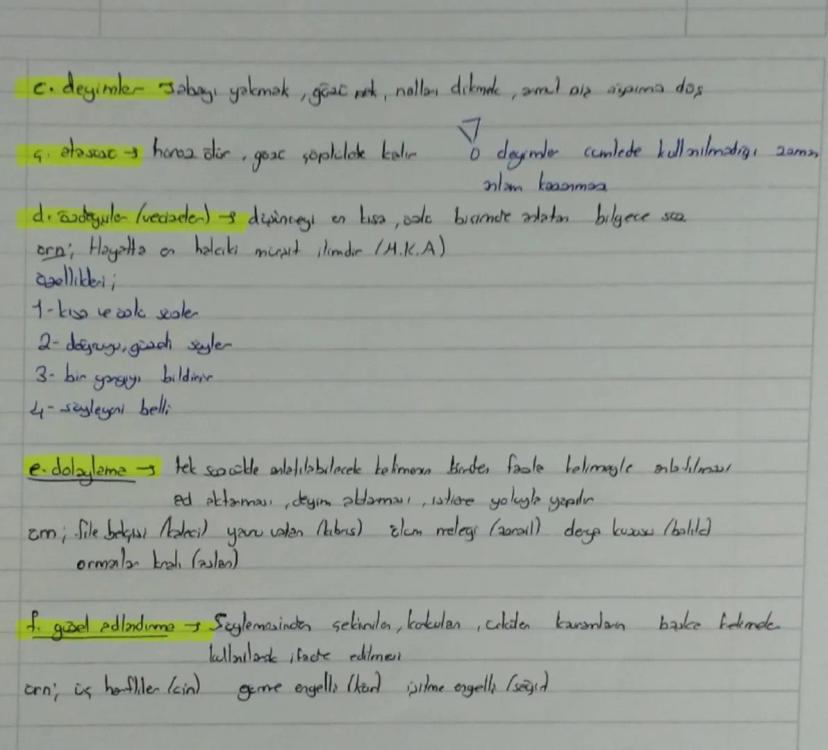 c. deyimler → abayı yakmak, göze, nalları dikmek,
ç. atasözü → horoz ölür, gözü çöplükte kalır
▽ o deyimler cümlede kullanılmadığı zaman
anlam kazanmaz
d. özdeyişler (vecizeler) → düşünceyi en kısa, özlü biçimde anlatan bilgece söz
örn; Hayatta en hakiki mürşit ilimdir (M.K.A)
özellikleri;
1- kısa ve özlü sözler
2- doğruyu, güzeli söyler
3- bir yargıyı bildirir
4- söyleyeni belli
e. dolaylama → tek sözcükle anlatılabilecek kelimenin birden fazla kelimeyle anlatılması
ad aktarması, deyim aktarması, istiare yoluyla yapılır
örn; file bekçisi (kaleci) yavru vatan (kıbrıs) ölüm meleği (azrail) derya kuzusu (balık)
ormanlar kralı (aslan)
f. güzel adlandırma → Söylemesinden çekinilen, korkulan, kavramların başka kelimeler
kullanılarak ifade edilmesi
örn; üç harfliler (cin) görme engelli (kör) işitme engelli (sağır)